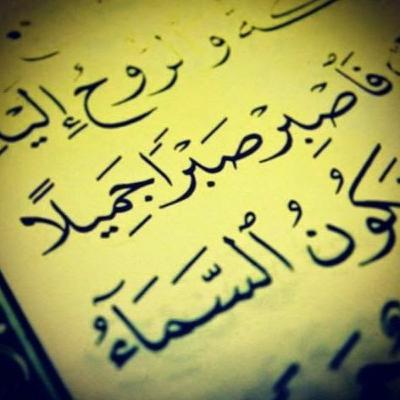 وَٱلرُّوحُ إِلَيْـ
فَٱصْبِرْ صَبْرًا جَمِيلًا
تَكُونُ ٱلسَّمَآءُ